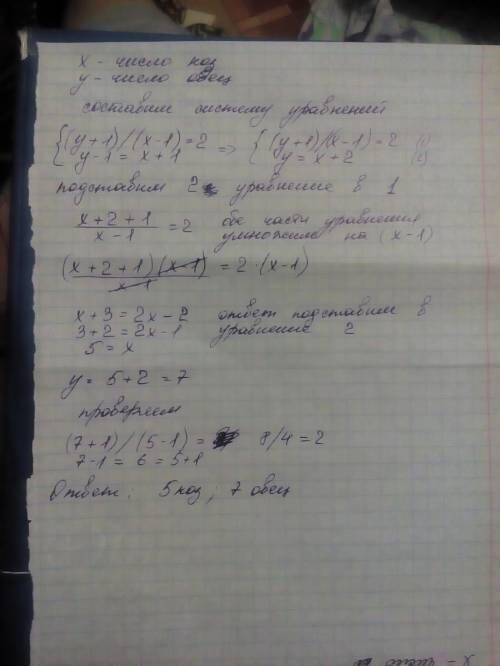 x - число коз
y - число овец
составим систему уравнений
{(y+1)/(x-1)=2 => {(y+1)/(x-1)=2 (1)
y-1 = x+1 y = x+2 (2)
подставим 2 уравнение в 1
(x+2+1)/(x-1) = 2 обе части уравнения умножим на (x-1)
(x+2+1)(x-1)/(x-1) = 2·(x-1)
x+3 = 2x-2 ответ подставим в
3+2 = 2x-1 уравнение 2
5 = x
y = 5+2 = 7
проверяем
(7+1)/(5-1) = 8/4 = 2
7-1 = 6 = 5+1
Ответ: 5 коз; 7 овец